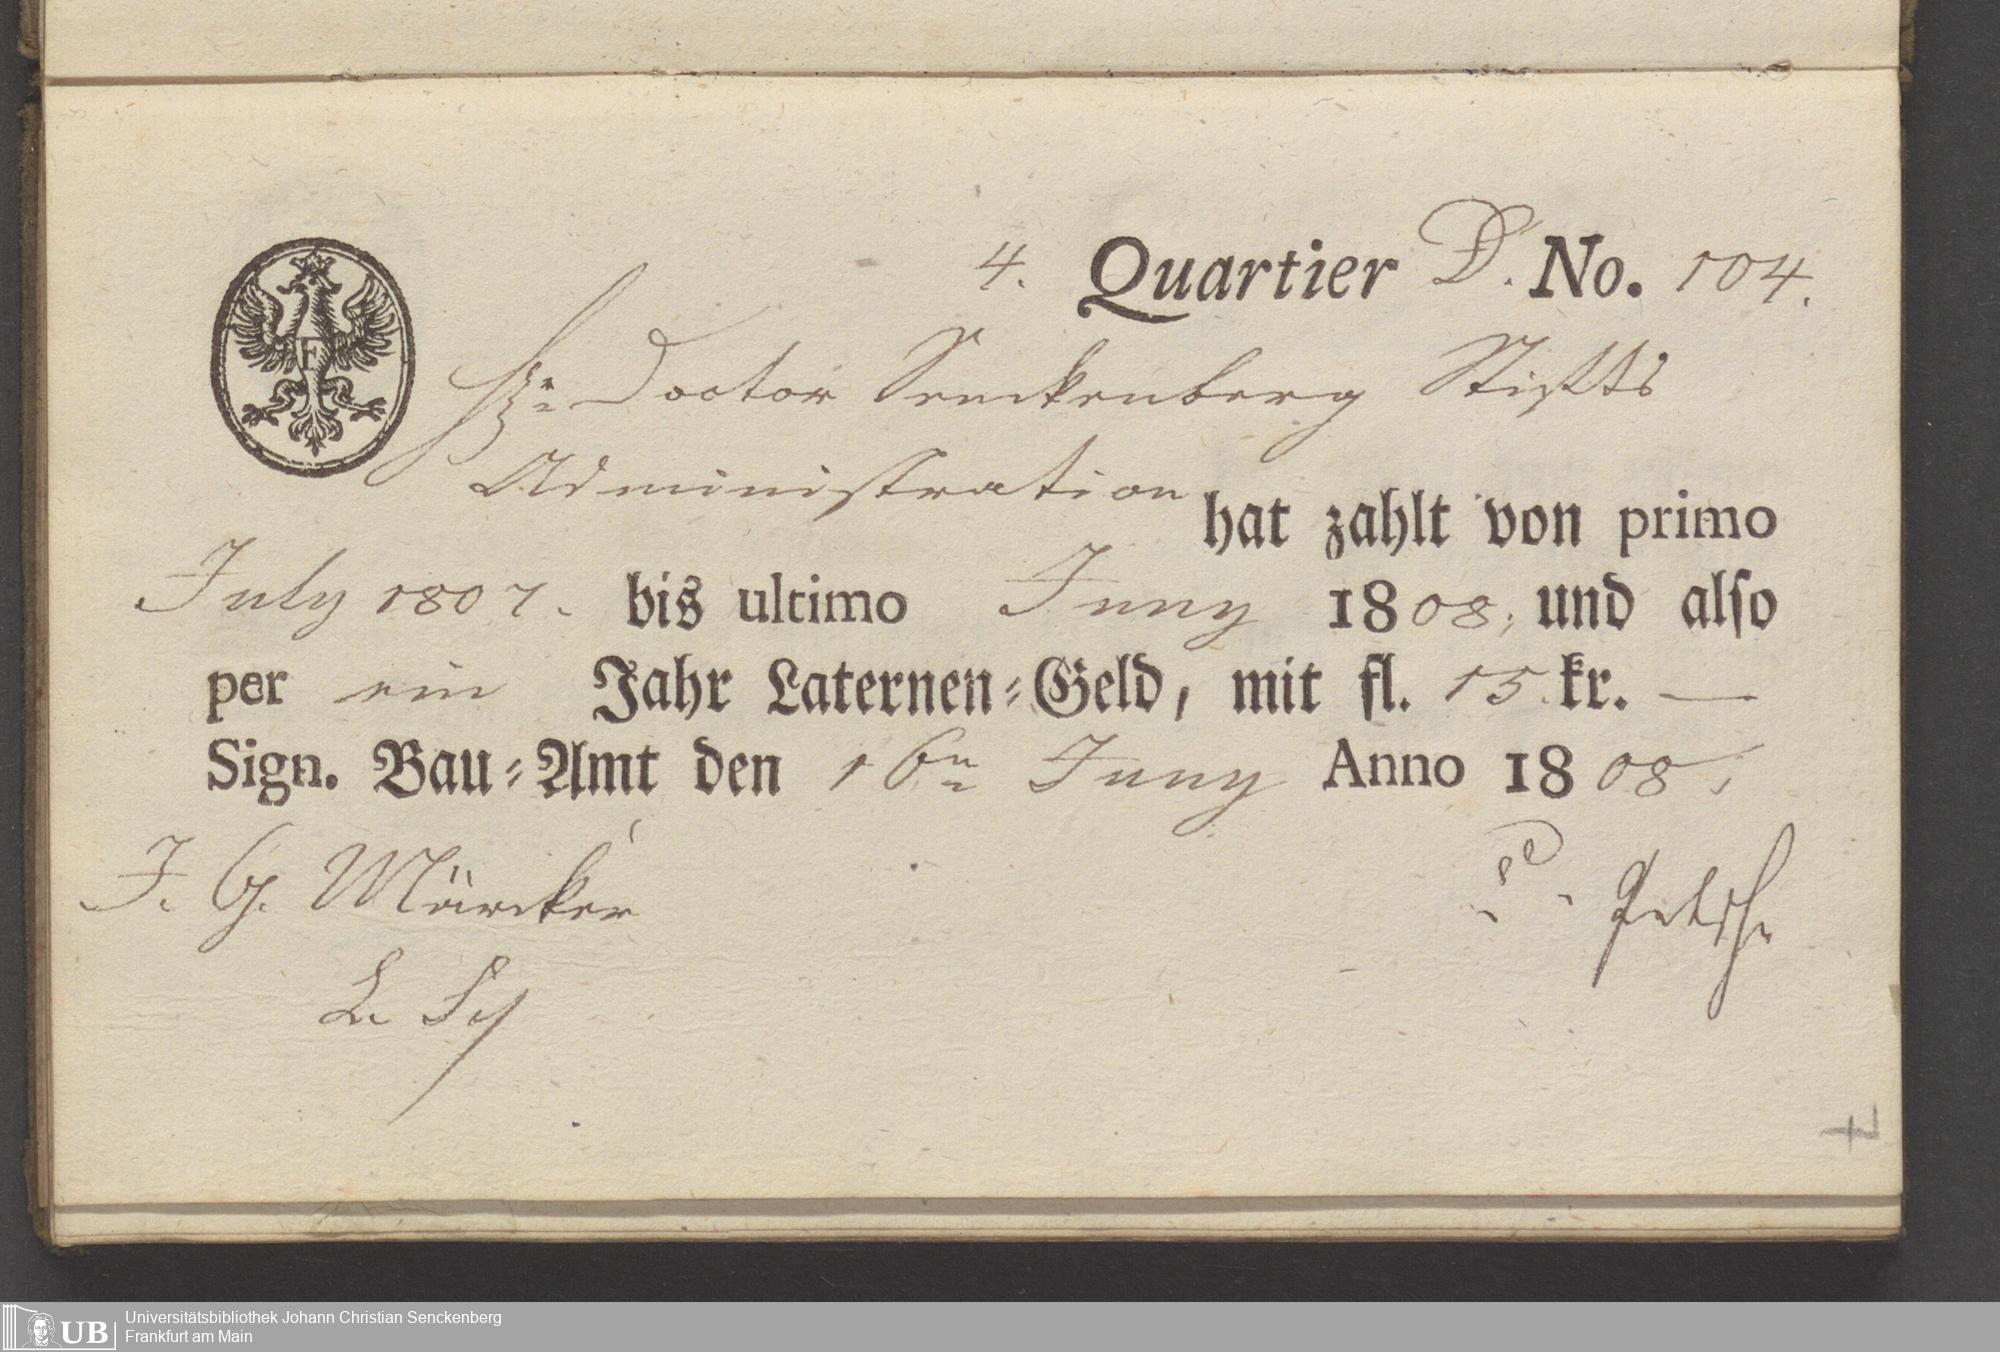 4. Quartier D. No. 104.
Hr. Doctor Senckenberg Stiffts
Administration
hat zahlt von primo
July 1807. bis ultimo Juny 1808, und also
per ein Jahr Laternen-Geld, mit fl. 15 kr. —
Sign. Bau-Amt den 16n Juny Anno 1808,
J. G. Märcker
Petsch
F
Universitätsbibliothek Johann Christian Senckenberg
UB Frankfurt am Main